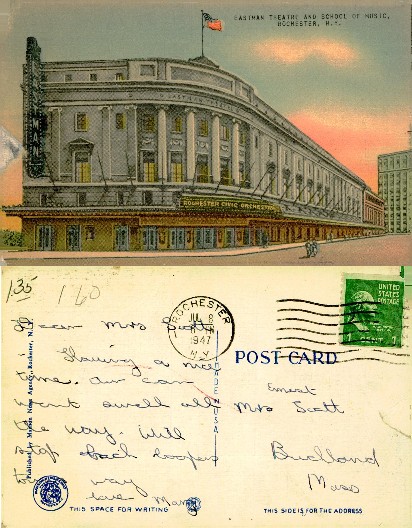 EASTMAN THEATRE AND SCHOOL OF MUSIC,
ROCHESTER, N.Y.
EASTMAN
ROCHESTER CIVIC ORCHESTRA
1.35
1.60
ROCHESTER
JUL 8
1947
N.Y.
UNITED STATES
POSTAGE
1 CENT 1
Dear Mrs Scott
Having a nice
time. Our car
went swell all
the way. Will
stop back
way
love Mary
Published by Manson News Agency, Rochester, N.Y.
MADE IN U.S.A.
POST CARD
Ernest
Mrs Scott
Buckland
Mass
THIS SPACE FOR WRITING
THIS SIDE IS FOR THE ADDRESS